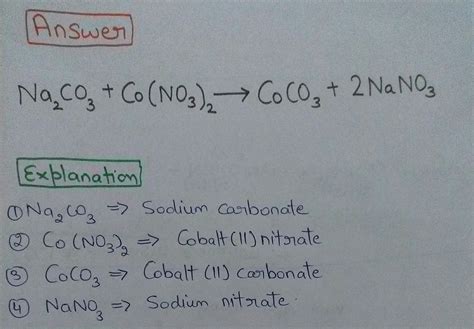 Answer
Na₂CO₃ + Co(NO₃)₂ → CoCO₃ + 2NaNO₃
Explanation
① Na₂CO₃ => Sodium carbonate
② Co(NO₃)₂ => Cobalt (II) nitrate
③ CoCO₃ => Cobalt (II) carbonate
④ NaNO₃ => Sodium nitrate.